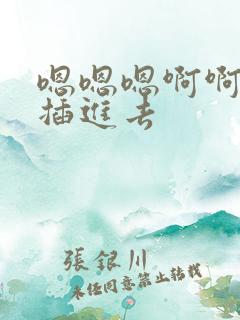 嗯嗯嗯啊啊
插進去
張銀川
未任同意禁止转载